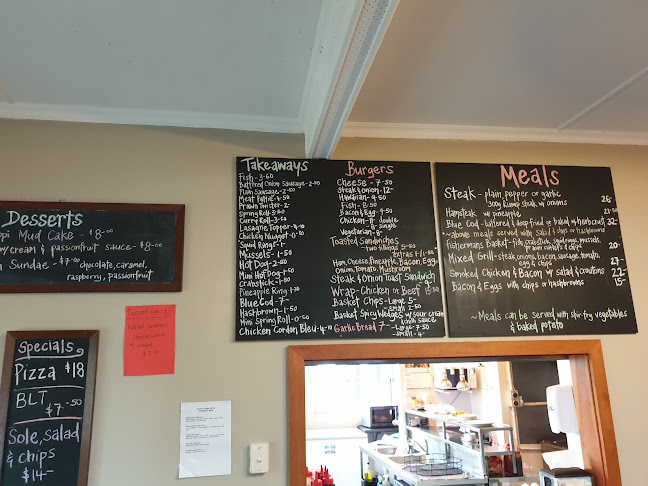 Desserts
ppi Mud Cake - $8.00
cream & passionfruit sauce - $8.00
Sundae - $7.00
chocolate, caramel,
raspberry, passionfruit
Specials
Pizza $18
BLT
$7-50
Sole, salad
& chips
$14-
Takeaways
Fish - 3-60
Battered Onion Sausage - 2-80
Plain Sausage - 2-50
Meat Pattie - 4-50
Prawn Twister - 2-
Spring Roll - 3-50
Curry Roll - 3-50
Lasagne Topper - 4-10
Chicken Nugget - 0-70
Squid Rings - 1-
Mussels - 1-50
Hot Dog - 2-80
Mini Hot Dog - 1-50
Crabstick - 1-80
Pineapple Ring - 1-30
Blue Cod - 7-
Hashbrown - 1-50
Mini Spring Roll - 0-50
Chicken Cordon Bleu - 4-
Burgers
Cheese - 7-50
Steak & Onion - 12-
Hawaiian - 9-50
Fish - 8-50
Bacon & Egg - 9-50
Chicken - 11- double
8- single
Vegetarian - 8-
Toasted Sandwiches
- two fillings 5-50
extras +1/-
Ham, Cheese, Pineapple, Bacon, Egg,
Onion, Tomato, Mushroom
Steak & Onion Toast Sandwich
Wrap - Chicken or Beef
Basket Chips - Large 5-
- small
Basket Spicy Wedges w sour cream
& chilli sauce
- Large - 7-50
- small - 4-
Garlic Bread 7-
Meals
Steak - plain, pepper or garlic
300g Rump steak w onions 26-
Hamsteak w pineapple 23-
Blue Cod - battered & deep fried or baked w herb crust 32-
~ above meals served with salad & chips or hashbrowns
Fishermans Basket - fish, crabstick, squid rings, mussels,
prawn twists & chips 20-
Mixed Grill - steak, onions, bacon, sausage, tomato,
egg & chips 27-
Smoked Chicken & Bacon w salad & croutons 22-
Bacon & Eggs with chips or hashbrowns 15-
~ Meals can be served with stir-fry vegetables
& baked potato